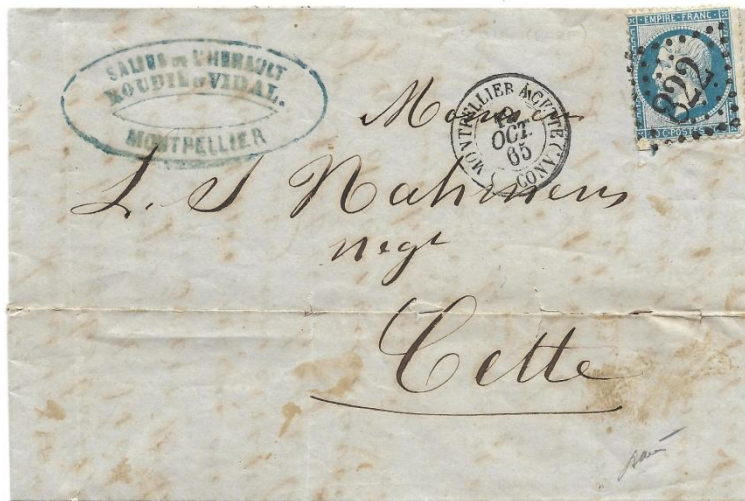 SALINS DE L'HERAULT
ROUDIL ET VIDAL.
MONTPELLIER
EMPIRE·FRANC·
C·POSTES
822
MONTPELLIER A CETTE
OCT.
65
Monsieur
L. S
Negt
Cette